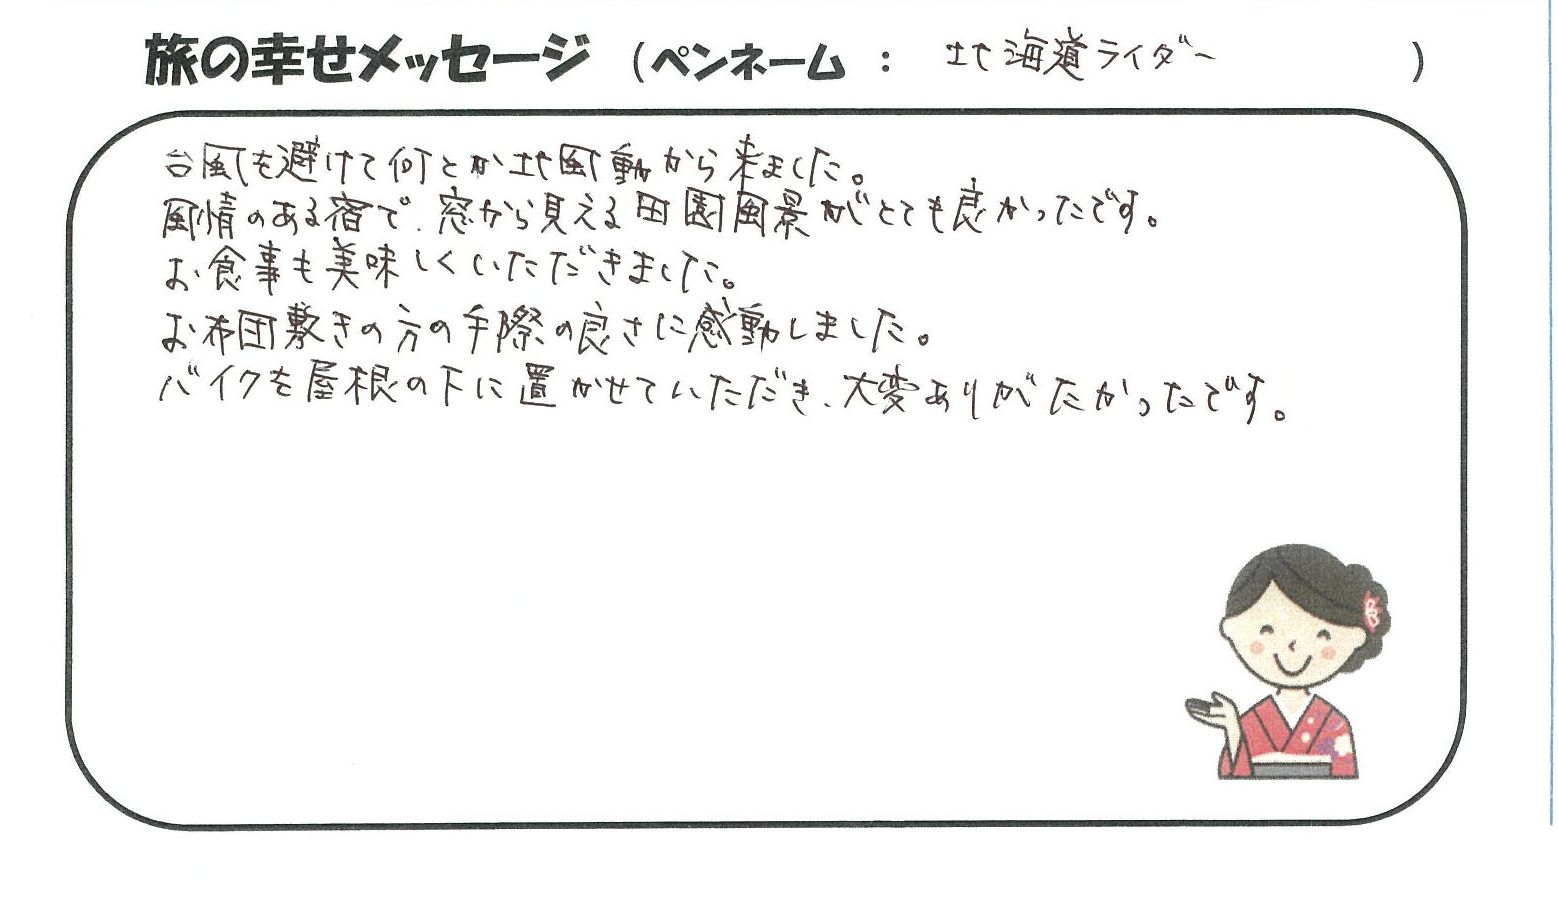 旅の幸せメッセージ (ペンネーム : 北海道ライダー )
台風を避けて何とか北風動から来ました。
風情のある宿で、窓から見える田園風景がとても良かったです。
お食事も美味しくいただきました。
お布団敷きの方の手際の良さに感動しました。
バイクを屋根の下に置かせていただき、大変ありがたかったです。